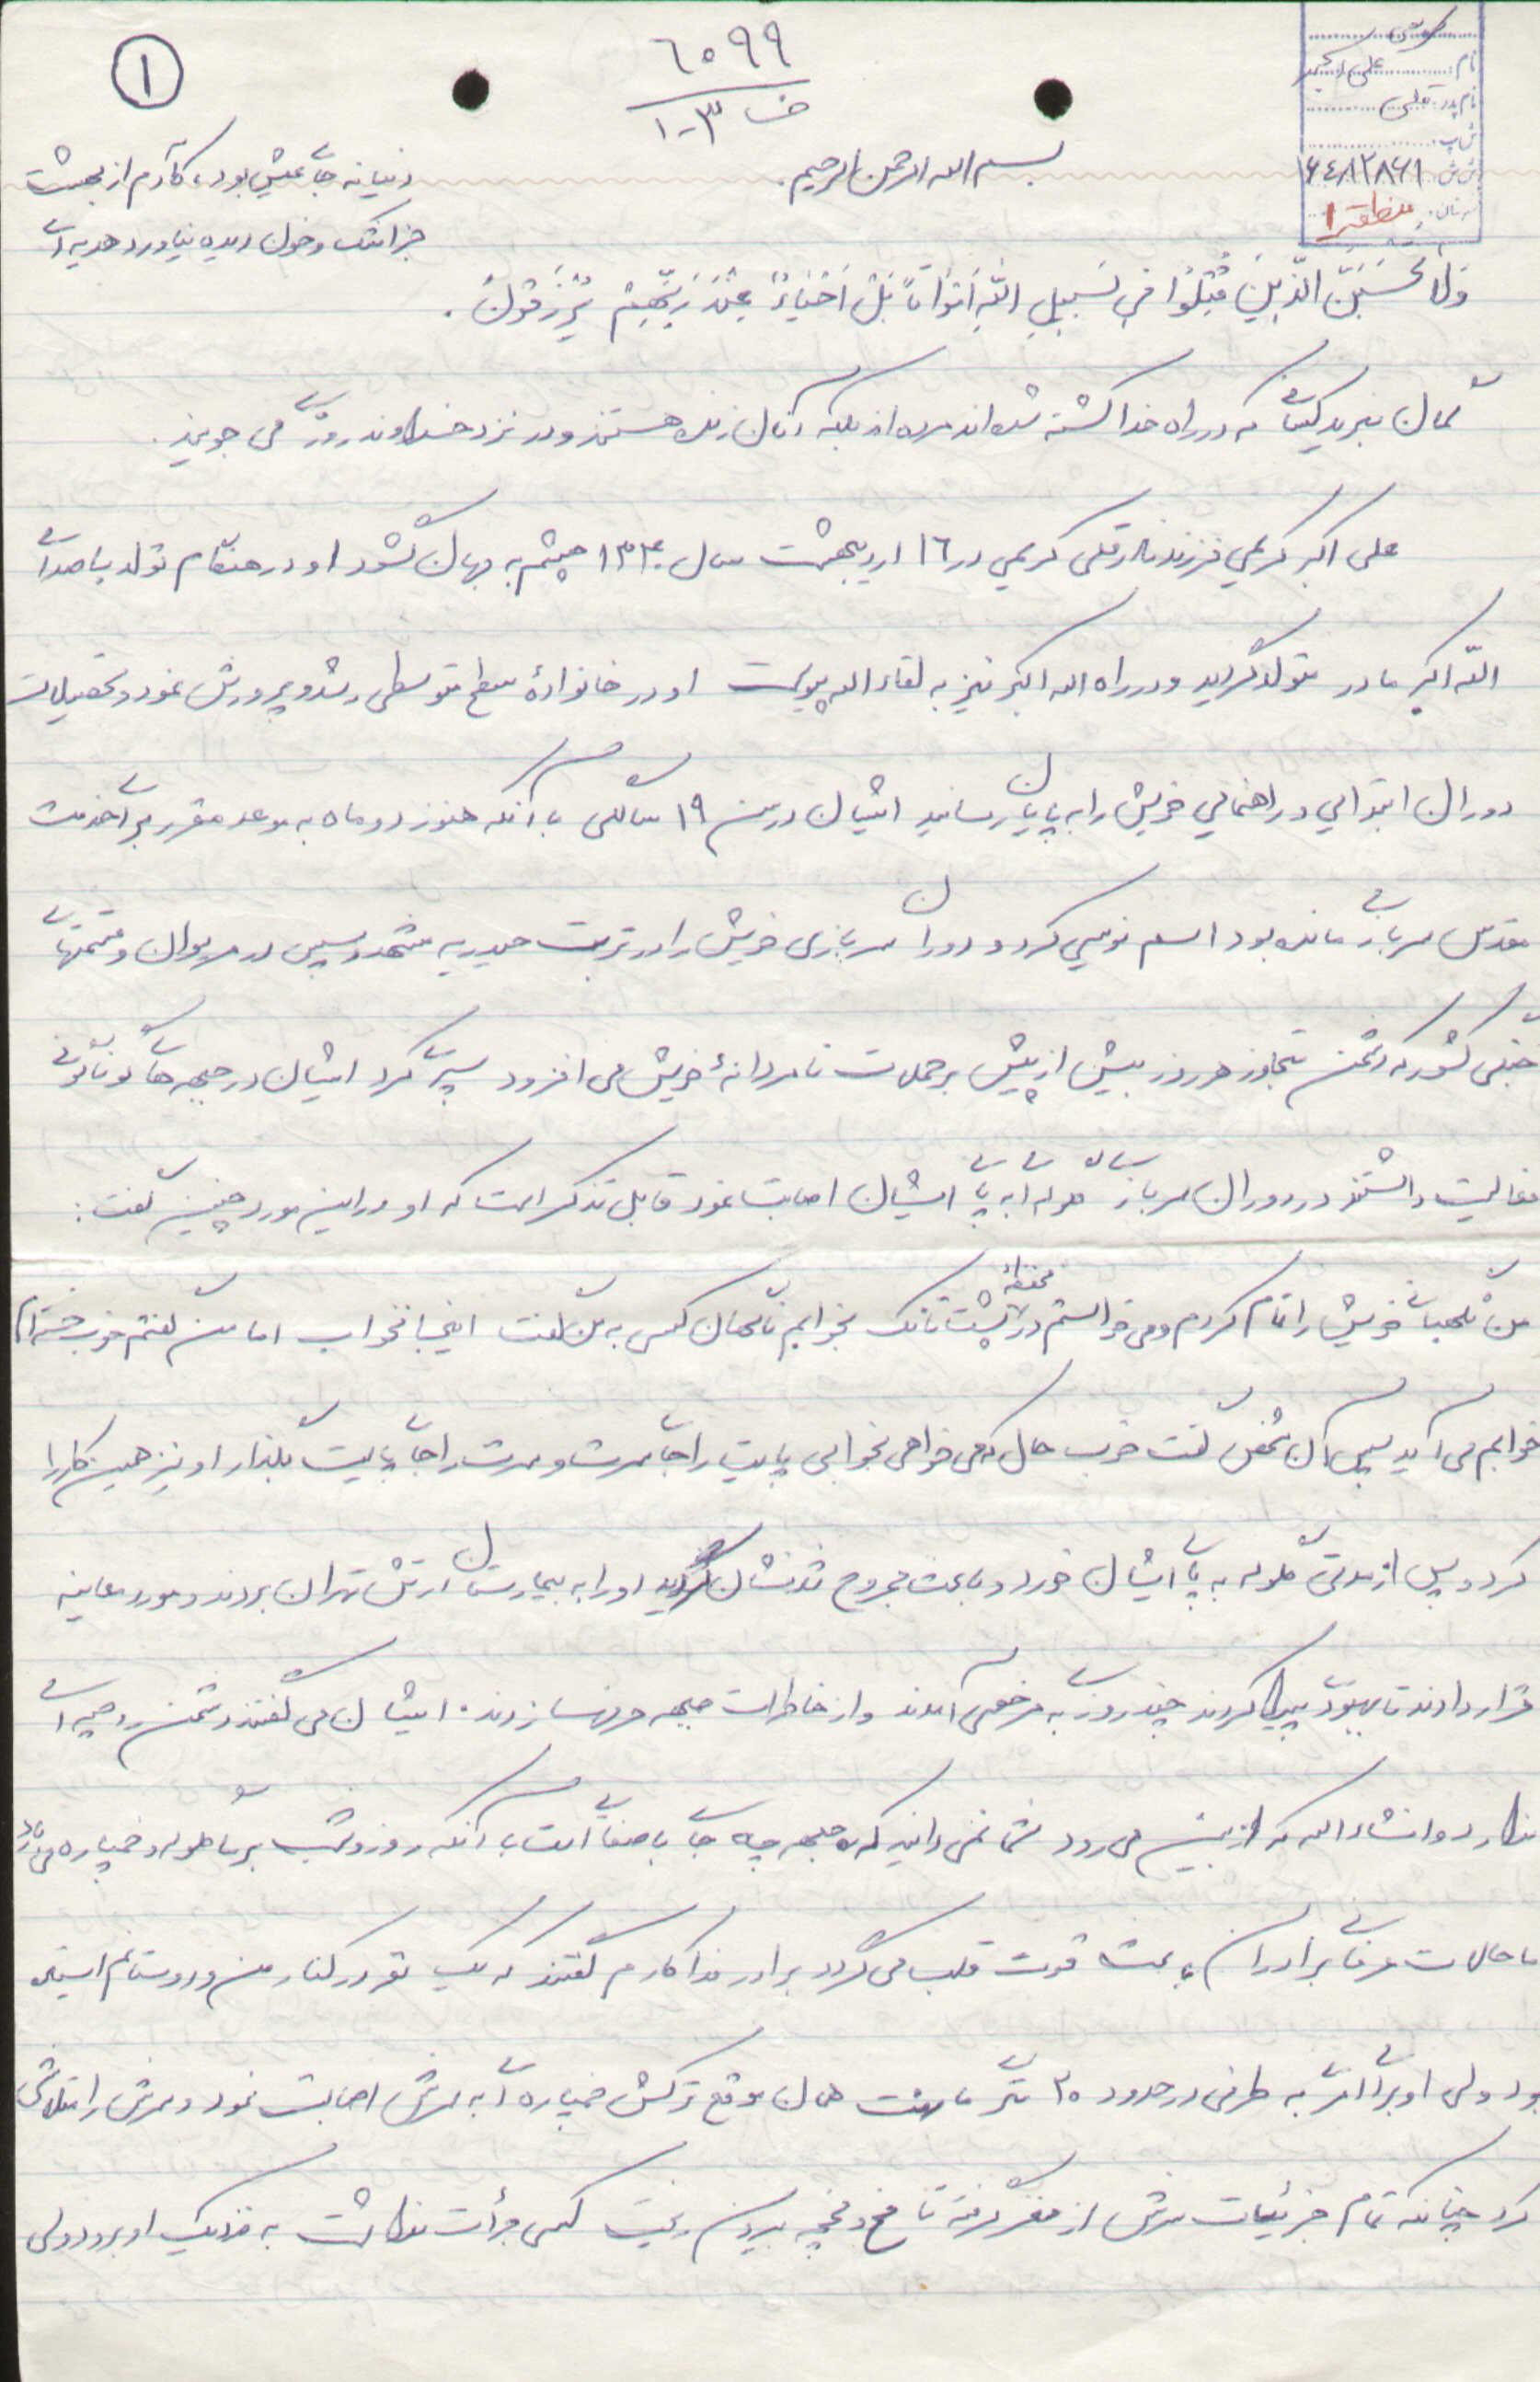 ۱
٦٠٩٩
ف ۱-۳
نام: علی اکبر
نام پدر: قلی
ش پ:
ش ش: ۱۶۴۸۲۸۶۱
منطقه ۱
بسم الله الرحمن الرحیم
دنیا نه جای عیش بود، کآدم از بهشت
جز اشک و خون دیده نیاورد هدیه ای
وَلا تَحْسَبَنَّ الَّذینَ قُتِلُوا فی سَبیلِ اللهِ اَمْواتاً بَلْ اَحْیاءٌ عِنْدَ رَبِّهِمْ یُرْزَقُونَ .
گمان نبرید کسانی که در راه خدا کشته شده اند مرده اند بلکه آنان زنده هستند و در نزد خداوند روزی می جویند .
علی اکبر کریمی فرزند نادرقلی کریمی در ۱٦ اردیبهشت سال ۱۳۴۰ چشم به جهان گشود او در هنگام تولد با صدای
الله اکبر مادر متولد گردید و در راه الله اکبر نیز به لقاء الله پیوست او در خانوادهٔ سطح متوسطی رشد و پرورش نمود و تحصیلات
دوران ابتدایی و راهنمایی خویش را به پایان رسانید ایشان در سن ۱۹ سالگی با آنکه هنوز دو ماه به موعد مقرر برای خدمت
مقدس سربازی مانده بود اسم نویسی کرد و دوران سربازی خویش را در تربت حیدریه مشهد و سپس در مریوان و قسمتهای
جنگی کشور که دشمن متجاوز هر روز بیش از پیش بر حملات نامردانهٔ خویش می افزود سپری کرد ایشان در جبهه های گوناگونی
فعالیت داشتند در دوران سربازی گلوله ای به پای ایشان اصابت نمود قابل تذکر است که او در این مورد چنین گفت:
من نگهبانی خویش را تمام کردم و می خواستم در پشت تانک بخوابم ناگهان کسی به من گفت اینجا نخواب اما من گفتم خوب خسته ام
خوابم می آید سپس آن شخص گفت خوب حال که می خواهی بخوابی پایت را جای سرت و سرت را جای پایت بگذار او نیز همین کار را
کرد و پس از مدتی گلوله به پای ایشان خورد و باعث مجروح شدنشان گردید او را به بیمارستان ارتش تهران بردند و مورد معاینه
قرار دادند تا بهبودی پیدا کردند چند روزی به مرخصی آمدند و از خاطرات جبهه حرفها زدند. ایشان می گفتند دشمن روحیه ای
ندارد و انشاء الله که از بین می رود شما نمی دانید که جبهه چه جای باصفائی است با آنکه روز و شب بر ما گلوله و خمپاره می بارد
اما حالات عرفانی برادران باعث قوت قلب می گردد برادر فداکارم گفتند که یک نفر در کنار من و دوستانم ایستاده
بود ولی او برای امری به طرفی در حدود ۲۰ متری ما رفت همان موقع ترکش خمپاره ای به سرش اصابت نمود و سرش را متلاشی
کرد چنانکه تمام جزئیات سرش از مغز گرفته تا مخ و مخچه بیرون ریخت کسی جرأت نداشت به نزدیک او برود ولی